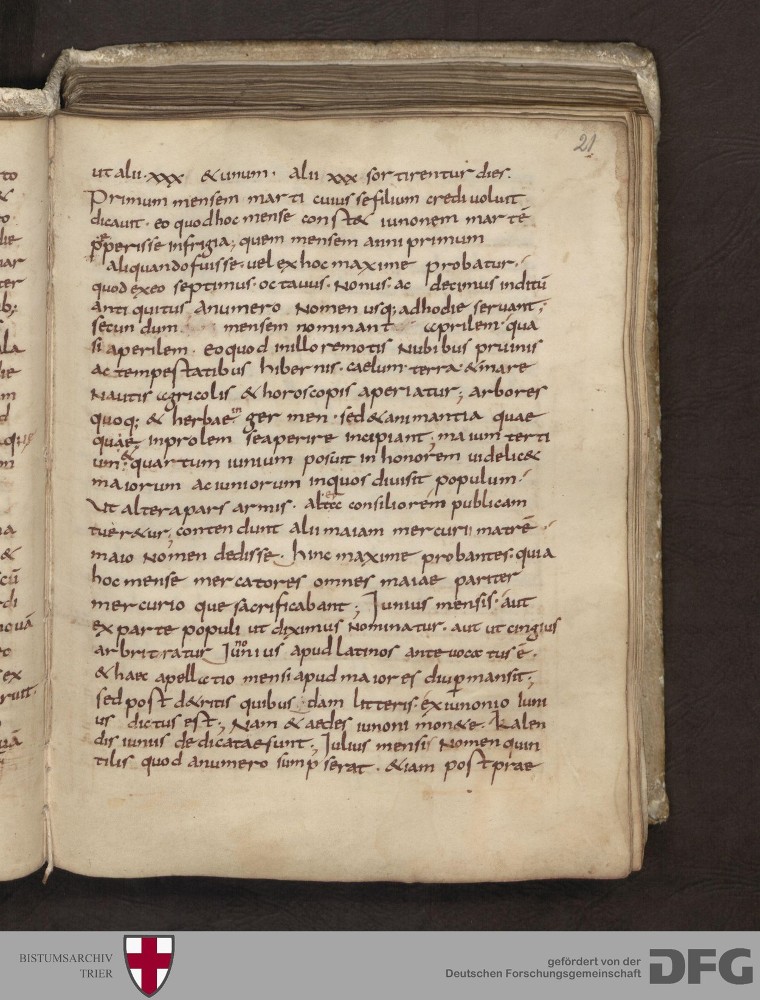 21
ut alii · xxx & unum · alii xxx sortirentur dies.
Primum mensem marti cuius se filium credi uoluit
dicauit · eo quod hoc mense const& iunonem martē
peperisse in frigia; quem mensem anni primum
aliquando fuisse · uel ex hoc maxime probatur ·
quod ex eo septimus · octauus · Nonus · ac decimus inditū
antiquitus anumero Nomen usq; ad hodie seruant;
secundum mensem nominant aprilem · qua
si aperilem · eo quod in illo remotis Nubibus pruinis
ac tempestatibus hibernis · caelum · terra · & mare
Nautis agricolis & horoscopis aperiatur; arbores
quoq; & herbae germen · sed & animantia quae
quae inprolem se aperire incipiant; maium terti
um · & quartum iunium posuit in honorem uidelic&
maiorum ac iuniorum in quos diuisit populum ·
Ut altera pars armis · consiliorem publicam
tuer&ur; contendunt alii maiam mercurii matrē ·
maio Nomen dedisse · hinc maxime probantes · quia
hoc mense mercatores omnes maiae pariter
mercurio que sacrificabant; Iunius mensis · aut
ex parte populi ut diximus Nominatur · aut ut cingius
arbritratur Iunius apud latinos ante uoca tus ē ·
& haec apellatio mensi apud maiores diu pmansit;
sed post d&ritis quibusdam litteris · ex iunonio iuni
us dictus est; Nam & aedes iunoni mon&e · kalen
dis iunius dedicatae sunt; Iulius mensi Nomen quin
tilis quod anumero sumpserat · &iam post prae
BISTUMSARCHIV
TRIER
gefördert von der
Deutschen Forschungsgemeinschaft
DFG